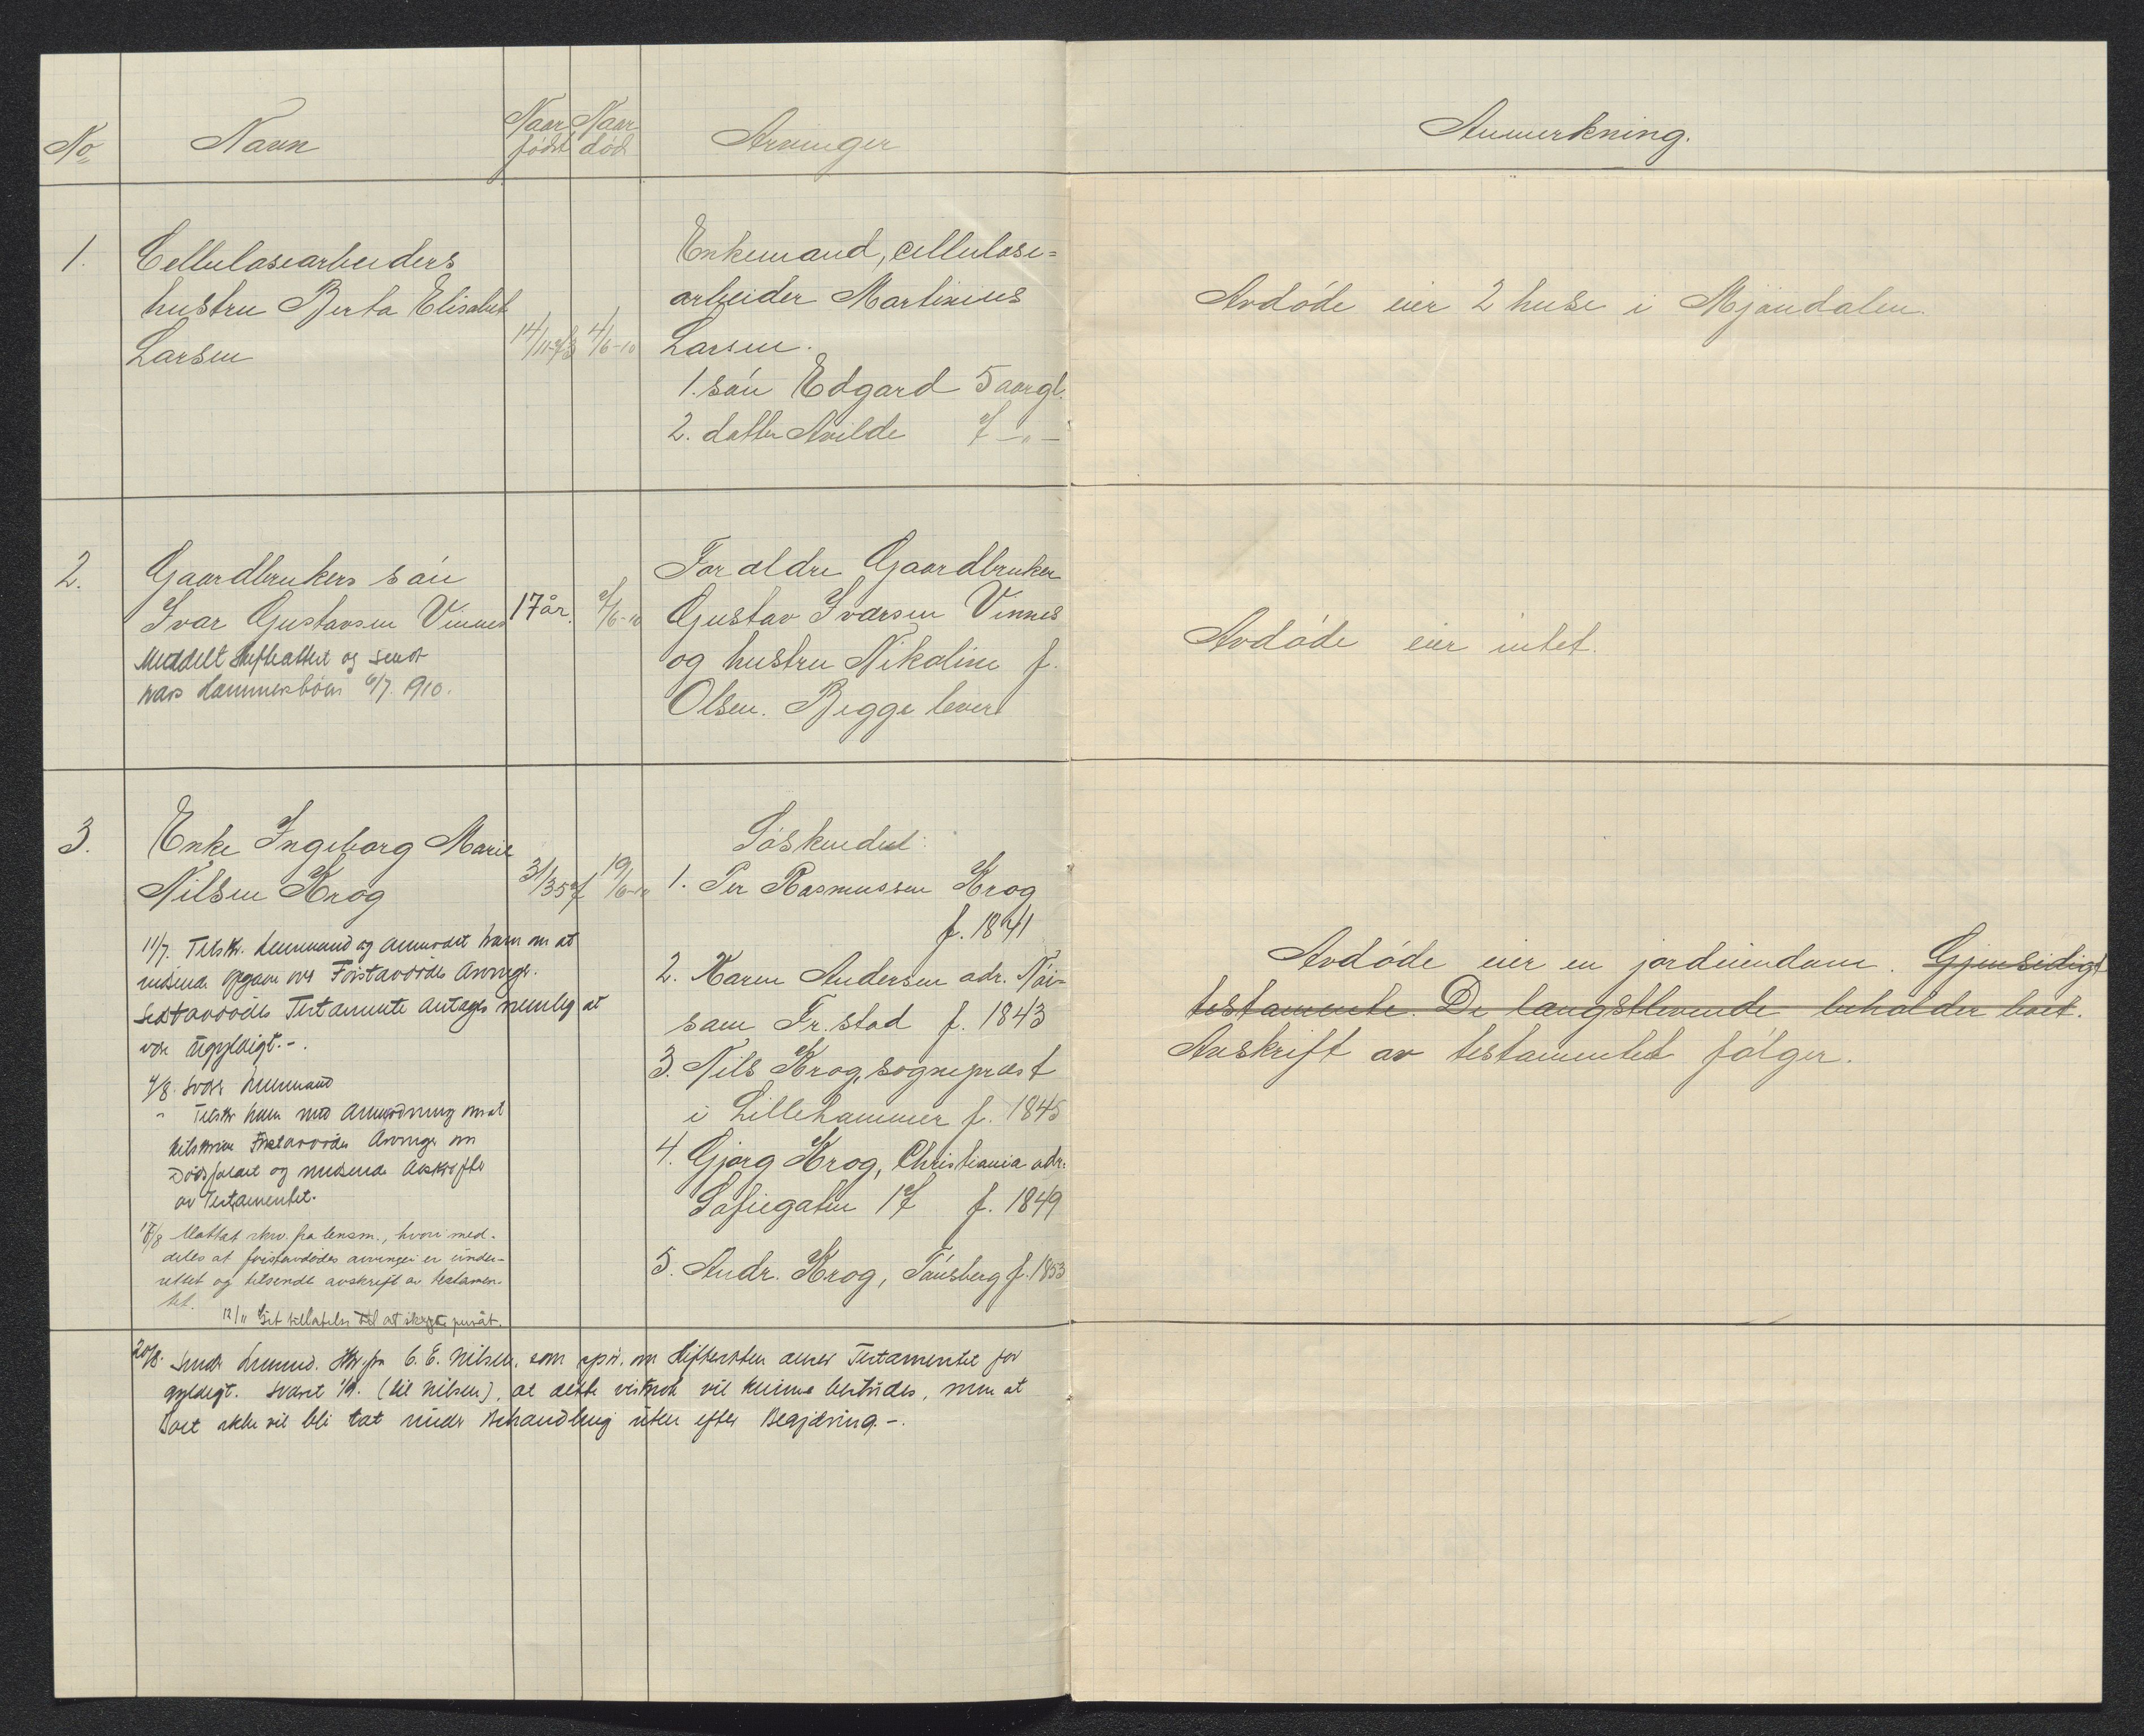 No Navn Naar født Naar død Arvinger Anmerkning.
1. Cellulosearbeiders
hustru Berta Elisabet
Larsen 14/11-73 4/6-10
Enkemand, cellulose=
arbeider Martinius
Larsen.
1. søn Edgard 5 aargl.
2. datter Arilde 7 -"-
Avdøde eier 2 huse i Mjøndalen.
2. Gaardbrukers søn
Ivar Gustavsen Vinnes 17 år. 7/6-10
Meddelt skifteattest og sendt
Hammersbøen 6/7. 1910.
Foraldre Gaardbruker
Gustav Ivarsen Vinnes
og hustru Nikoline f.
Olsen. Begge lever
Avdøde eier intet.
3. Enke Ingeborg Marie
Nilsen Krog 31/3 57 19/6-10
11/7. Tilskr. Lensmand og anmodet ham om at
indsende opgave over Førstavdødes Arvinger.
Sistavdødes Testamente antages nemlig at
være ugyldigt.-.
4/8. Svar Lensmand
" Tilskr. ham med Anmodning om at
tilskrive Førstavdødes Arvinger om
Dødsfaldet og indsende Avskrifter
av Testamentet.
17/8 Mottat skriv. fra lensm., hvori med-
deles at førstavdødes arvinger er under-
rettet og tilsendt avskrift av testamen-
tet.
12/11 Git tillatelse til at skifte privat.
Søskendet:
1. Per Rasmussen Krog
f. 1841
2. Karen Andersen adr. Nøi-
som Fr.stad f. 1843
3. Nils Krog, sogneprest
i Lillehammer f. 1845
4. Gjørg Krog, Christiania adr.
Sofiegaten 17 f. 1849
5. Andr. Krog, Tønsberg f. 1853
Avdøde eier en jordeiendom. Gjensidigt
testamente. De længstlevende beholder boet.
Avskrift av testamentet følger.
20/8. Lensmd. Skr. fra C. E. Nilsen, som spør. om Skifteretten anser Testamentet for
gyldigt. Svaret 1/9. (til Nilsen), at dette vistnok vil kunne bestrides, men at
Boet ikke vil bli tat under Behandling uten efter Begjæring.-.